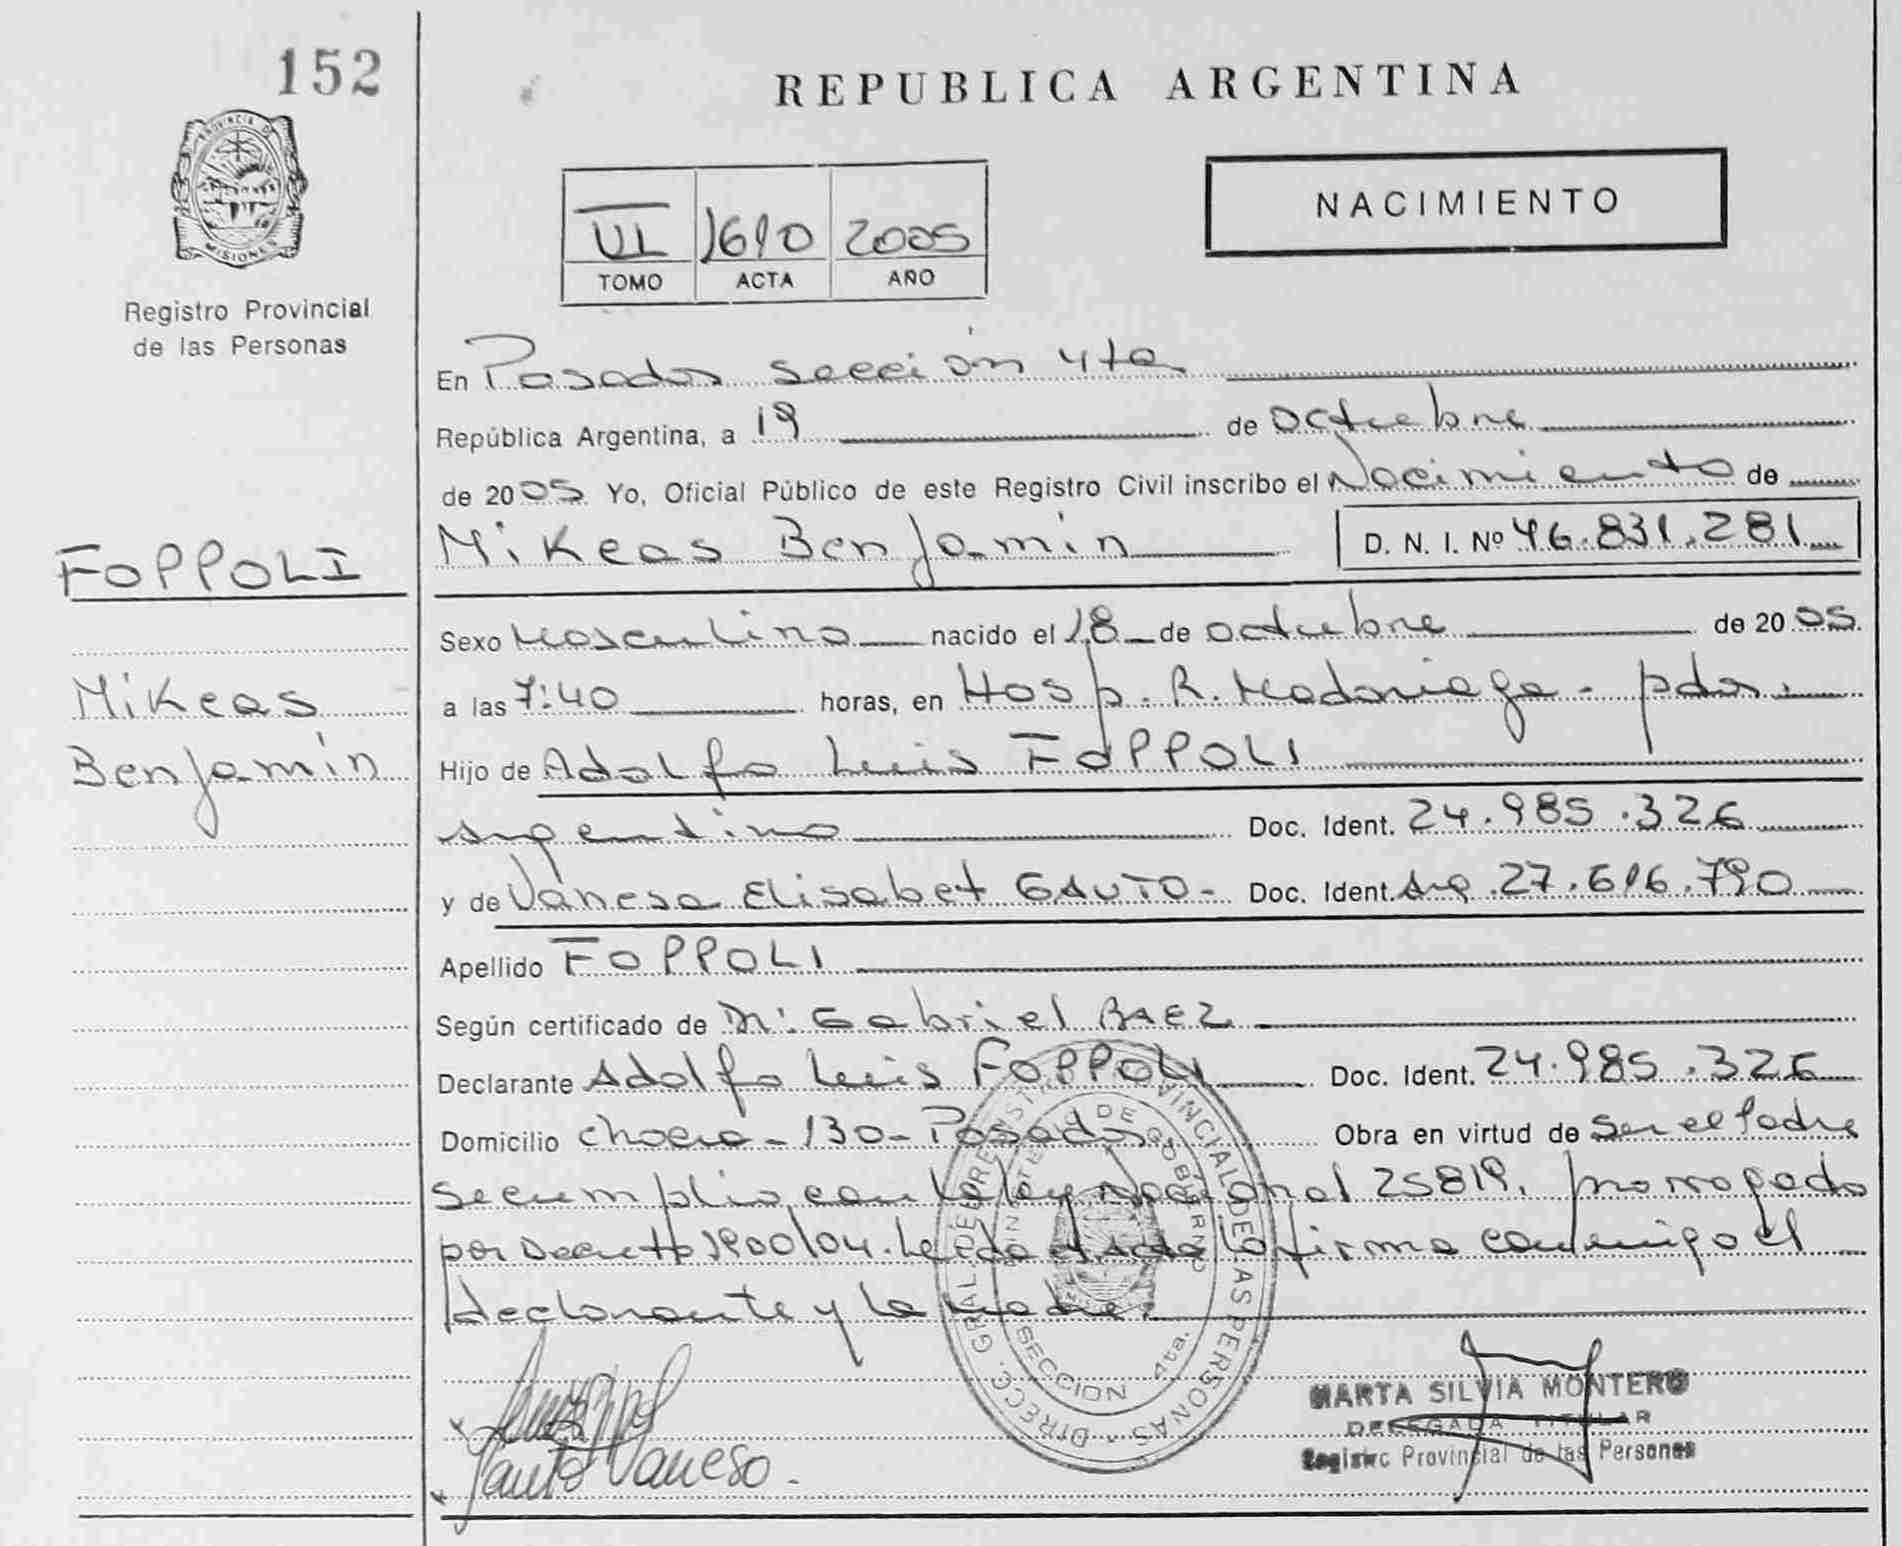 152
REPUBLICA ARGENTINA
PROVINCIA DE
MISIONES
Registro Provincial
de las Personas
VI 1610 2005
TOMO ACTA AÑO
NACIMIENTO
En Posadas sección 4ta
República Argentina, a 19 de octubre
de 2005 Yo, Oficial Público de este Registro Civil inscribo el Nacimiento de
Mikeas Benjamin D. N. I. Nº 46.831.281
FOPPOLI
Sexo Masculino nacido el 18 de octubre de 2005
Mikeas
a las 7:40 horas, en Hosp. R. Madariaga - pdas.
Benjamin
Hijo de Adolfo Luis FOPPOLI
argentino Doc. Ident. 24.985.326
y de Vanesa Elisabet GAUTO - Doc. Ident. Arg. 27.616.790
Apellido FOPPOLI
Según certificado de Dr. Gabriel BAEZ
Declarante Adolfo Luis FOPPOLI Doc. Ident. 24.985.326
Domicilio 130 - Posadas Obra en virtud de ser el Padre
se cumplio con la ley Nacional 25819, prorrogado
por Decreto 1900/04. Leida el Acta la firma conmigo el
declarante y la madre.
DIRECC. GRAL. DEL REGISTRO PROVINCIAL DE LAS PERSONAS
MINISTERIO DE GOBIERNO
SECCION 4ta.
Gauto Vanesa.
MARTA SILVIA MONTERO
DELEGADA TITULAR
Registro Provincial de las Personas